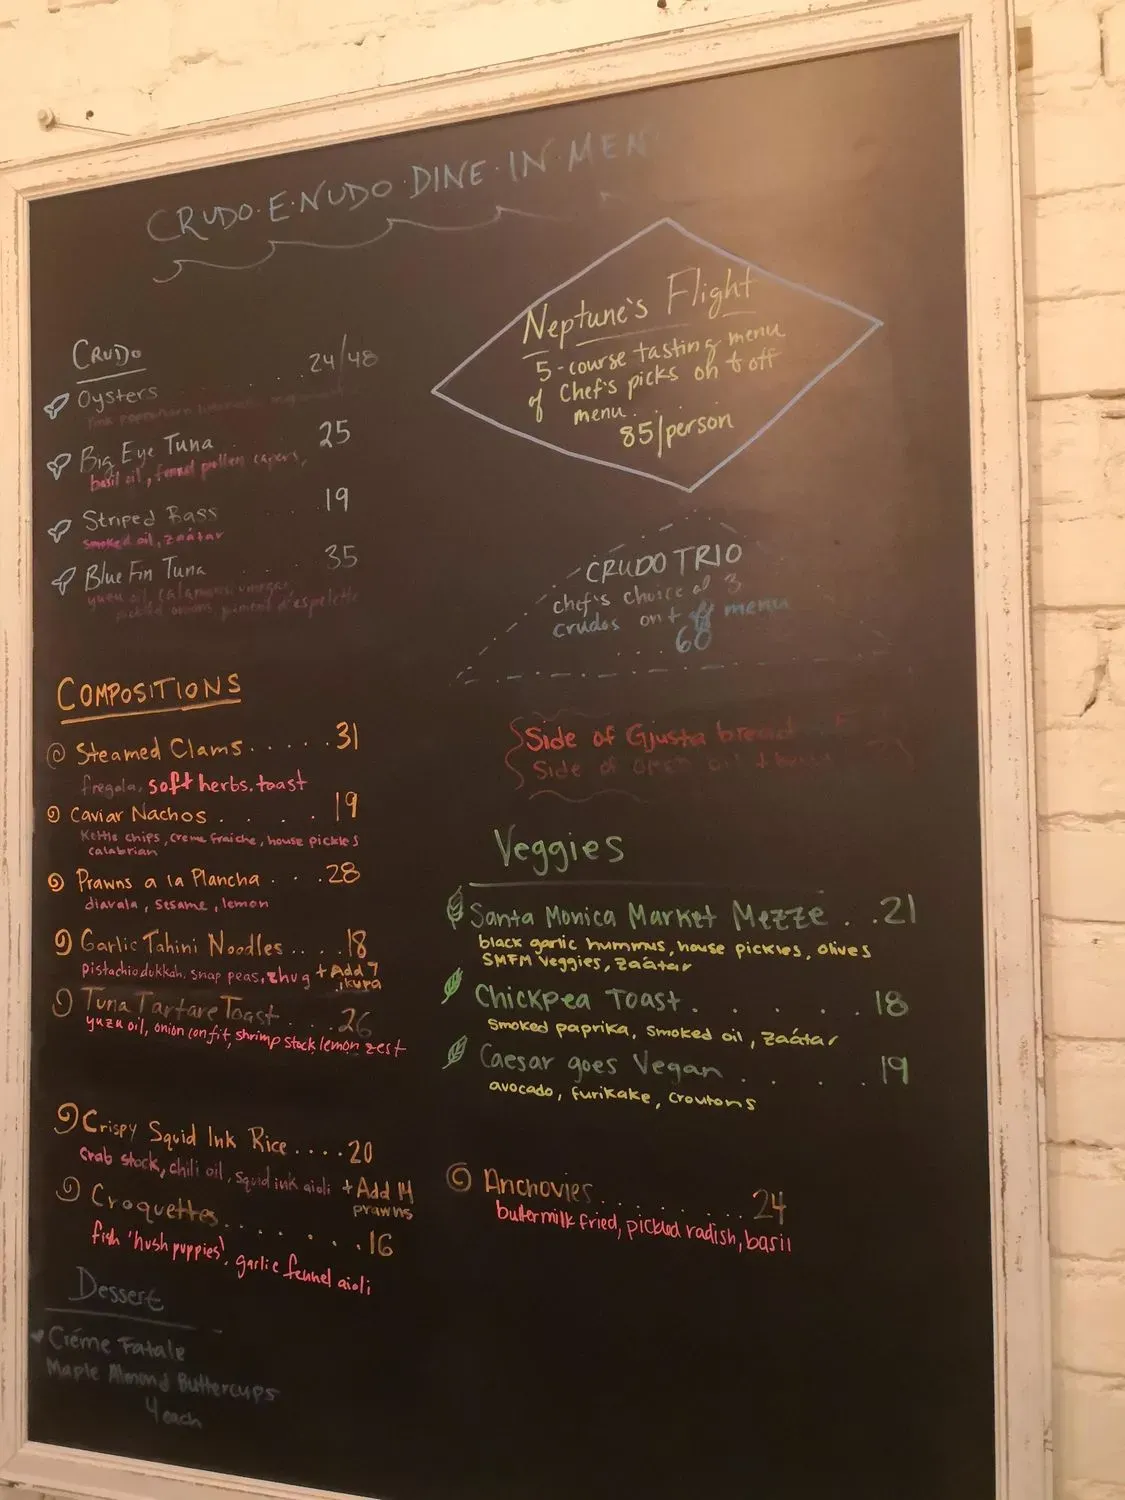 CRUDO·E·NUDO·DINE·IN·MEN
CRUDO
Oysters . . . 24/48
Big Eye Tuna . . . 25
basil oil, fennel pollen capers,
Striped Bass . . . 19
smoked oil, zaátar
Blue Fin Tuna . . . 35
yuzu oil, calamansi vinegar,
pickled onions, piment d'espelette
COMPOSITIONS
Steamed Clams . . . . . 31
fregola, soft herbs, toast
Caviar Nachos . . . . 19
Kettle chips, creme fraiche, house pickles
calabrian
Prawns a la Plancha . . . 28
diavala, sesame, lemon
Garlic Tahini Noodles . . . . 18
pistachio dukkah, snap peas, zhug + Add 7
ikura
Tuna Tartare Toast . . . . 26
yuzu oil, onion confit, shrimp stock, lemon zest
Crispy Squid Ink Rice . . . . 20
crab stock, chili oil, squid ink aioli + Add 14
prawns
Croquettes . . . . . . 16
fish 'hush puppies', garlic fennel aioli
Dessert
Créme Fatale
Maple Almond Buttercups
4 each
Neptune's Flight
5-course tasting menu
of Chef's picks on + off
menu
85/person
CRUDO TRIO
chef's choice of 3
crudos on + off menu
. . . . 60
Side of Gjusta bread
Side of oil
Veggies
Santa Monica Market Mezze . . 21
black garlic hummus, house pickles, olives
SMFM Veggies, zaátar
Chickpea Toast . . . . . 18
smoked paprika, smoked oil, zaátar
Caesar goes Vegan . . . . 19
avocado, furikake, croutons
Anchovies . . . . . . . . 24
buttermilk fried, pickled radish, basil